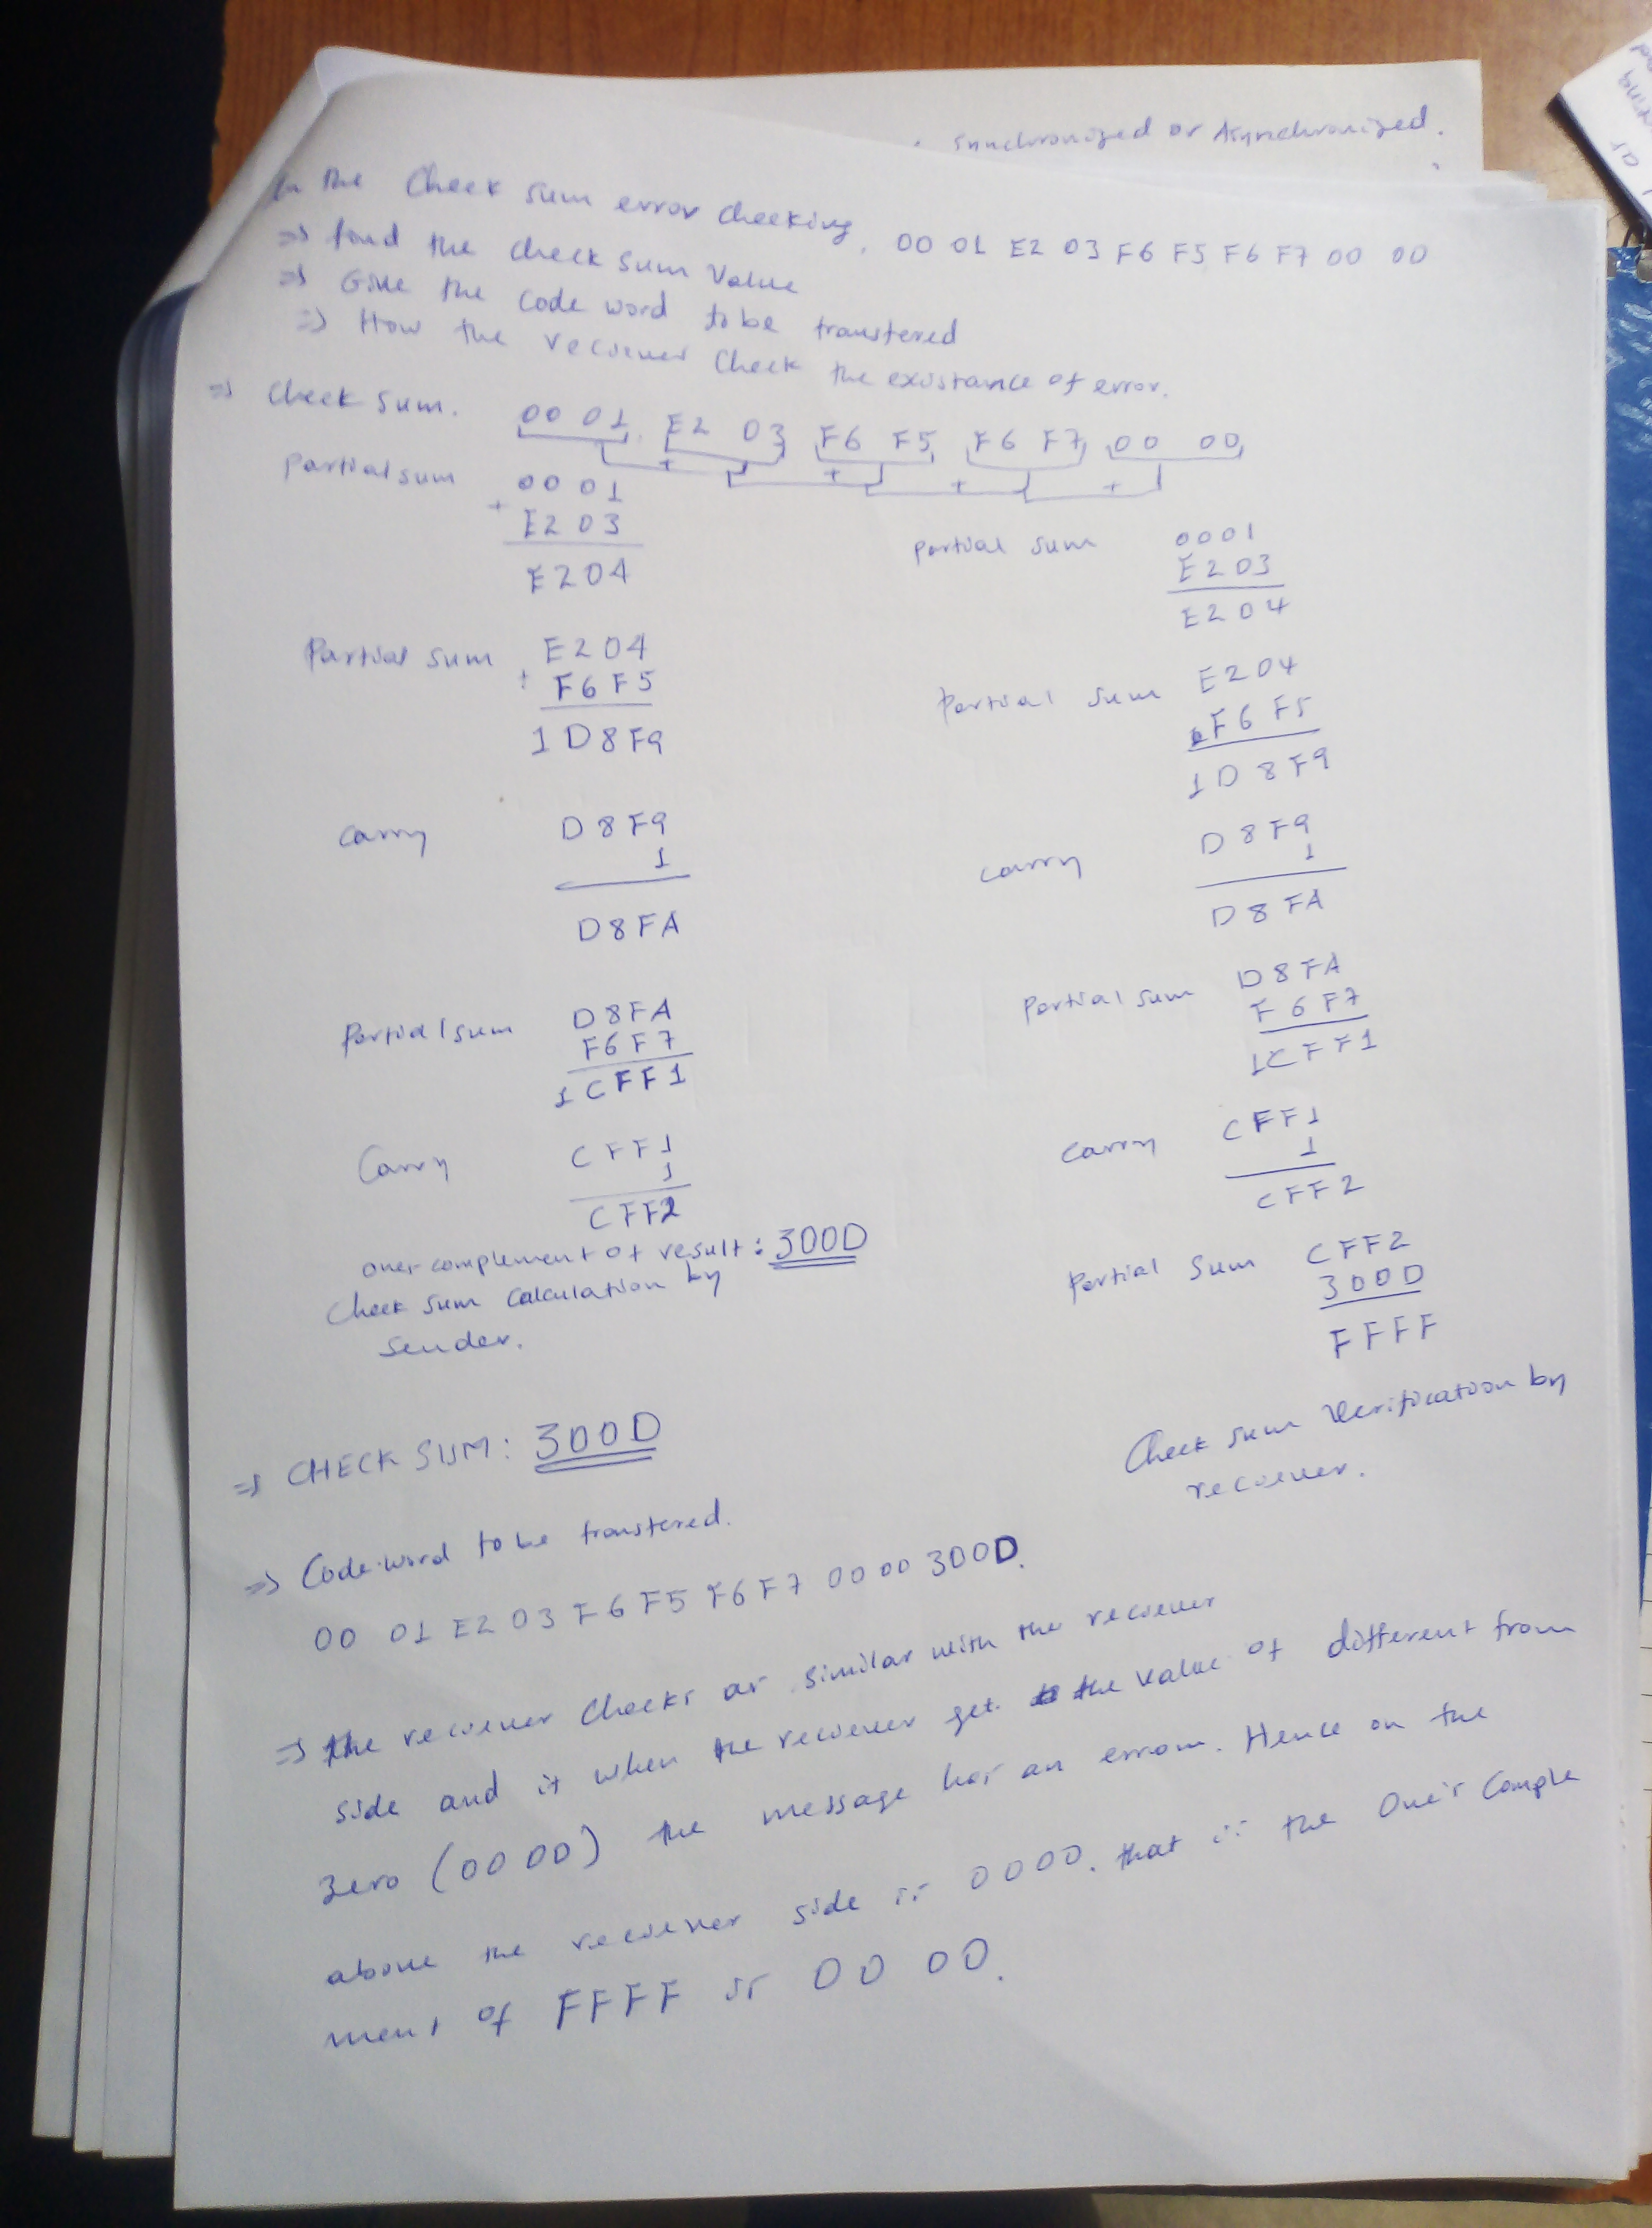 synchronized or Asynchronized.
In the Check sum error checking, 00 01 E2 03 F6 F5 F6 F7 00 00
=> find the check sum value
=> Give the code word to be transfered
=> How the reciever check the existance of error.
=> Check sum. 00 01 E2 03 F6 F5 F6 F7 00 00
+ + + +
Partial sum 0001
+ E203
E204
Partial sum E204
+ F6F5
1D8F9
Carry D8F9
1
D8FA
Partial sum D8FA
F6F7
1CFF1
Carry CFF1
1
CFF2
ones complement of result: 300D
Check sum calculation by
sender.
Partial sum 0001
E203
E204
Partial sum E204
F6F5
1D8F9
Carry D8F9
1
D8FA
Partial sum D8FA
F6F7
1CFF1
Carry CFF1
1
CFF2
Partial Sum CFF2
300D
FFFF
Check sum verification by
reciever.
=> CHECK SUM: 300D
=> Code word to be transfered.
00 01 E2 03 F6 F5 F6 F7 00 00 300D.
=> the reciever checks as similar with the reciever
side and if when the reciever get the value of different from
zero (00 00) the message has an errom. Hence on the
above the reciever side is 0000. that is the One's Comple
ment of FFFF is 00 00.